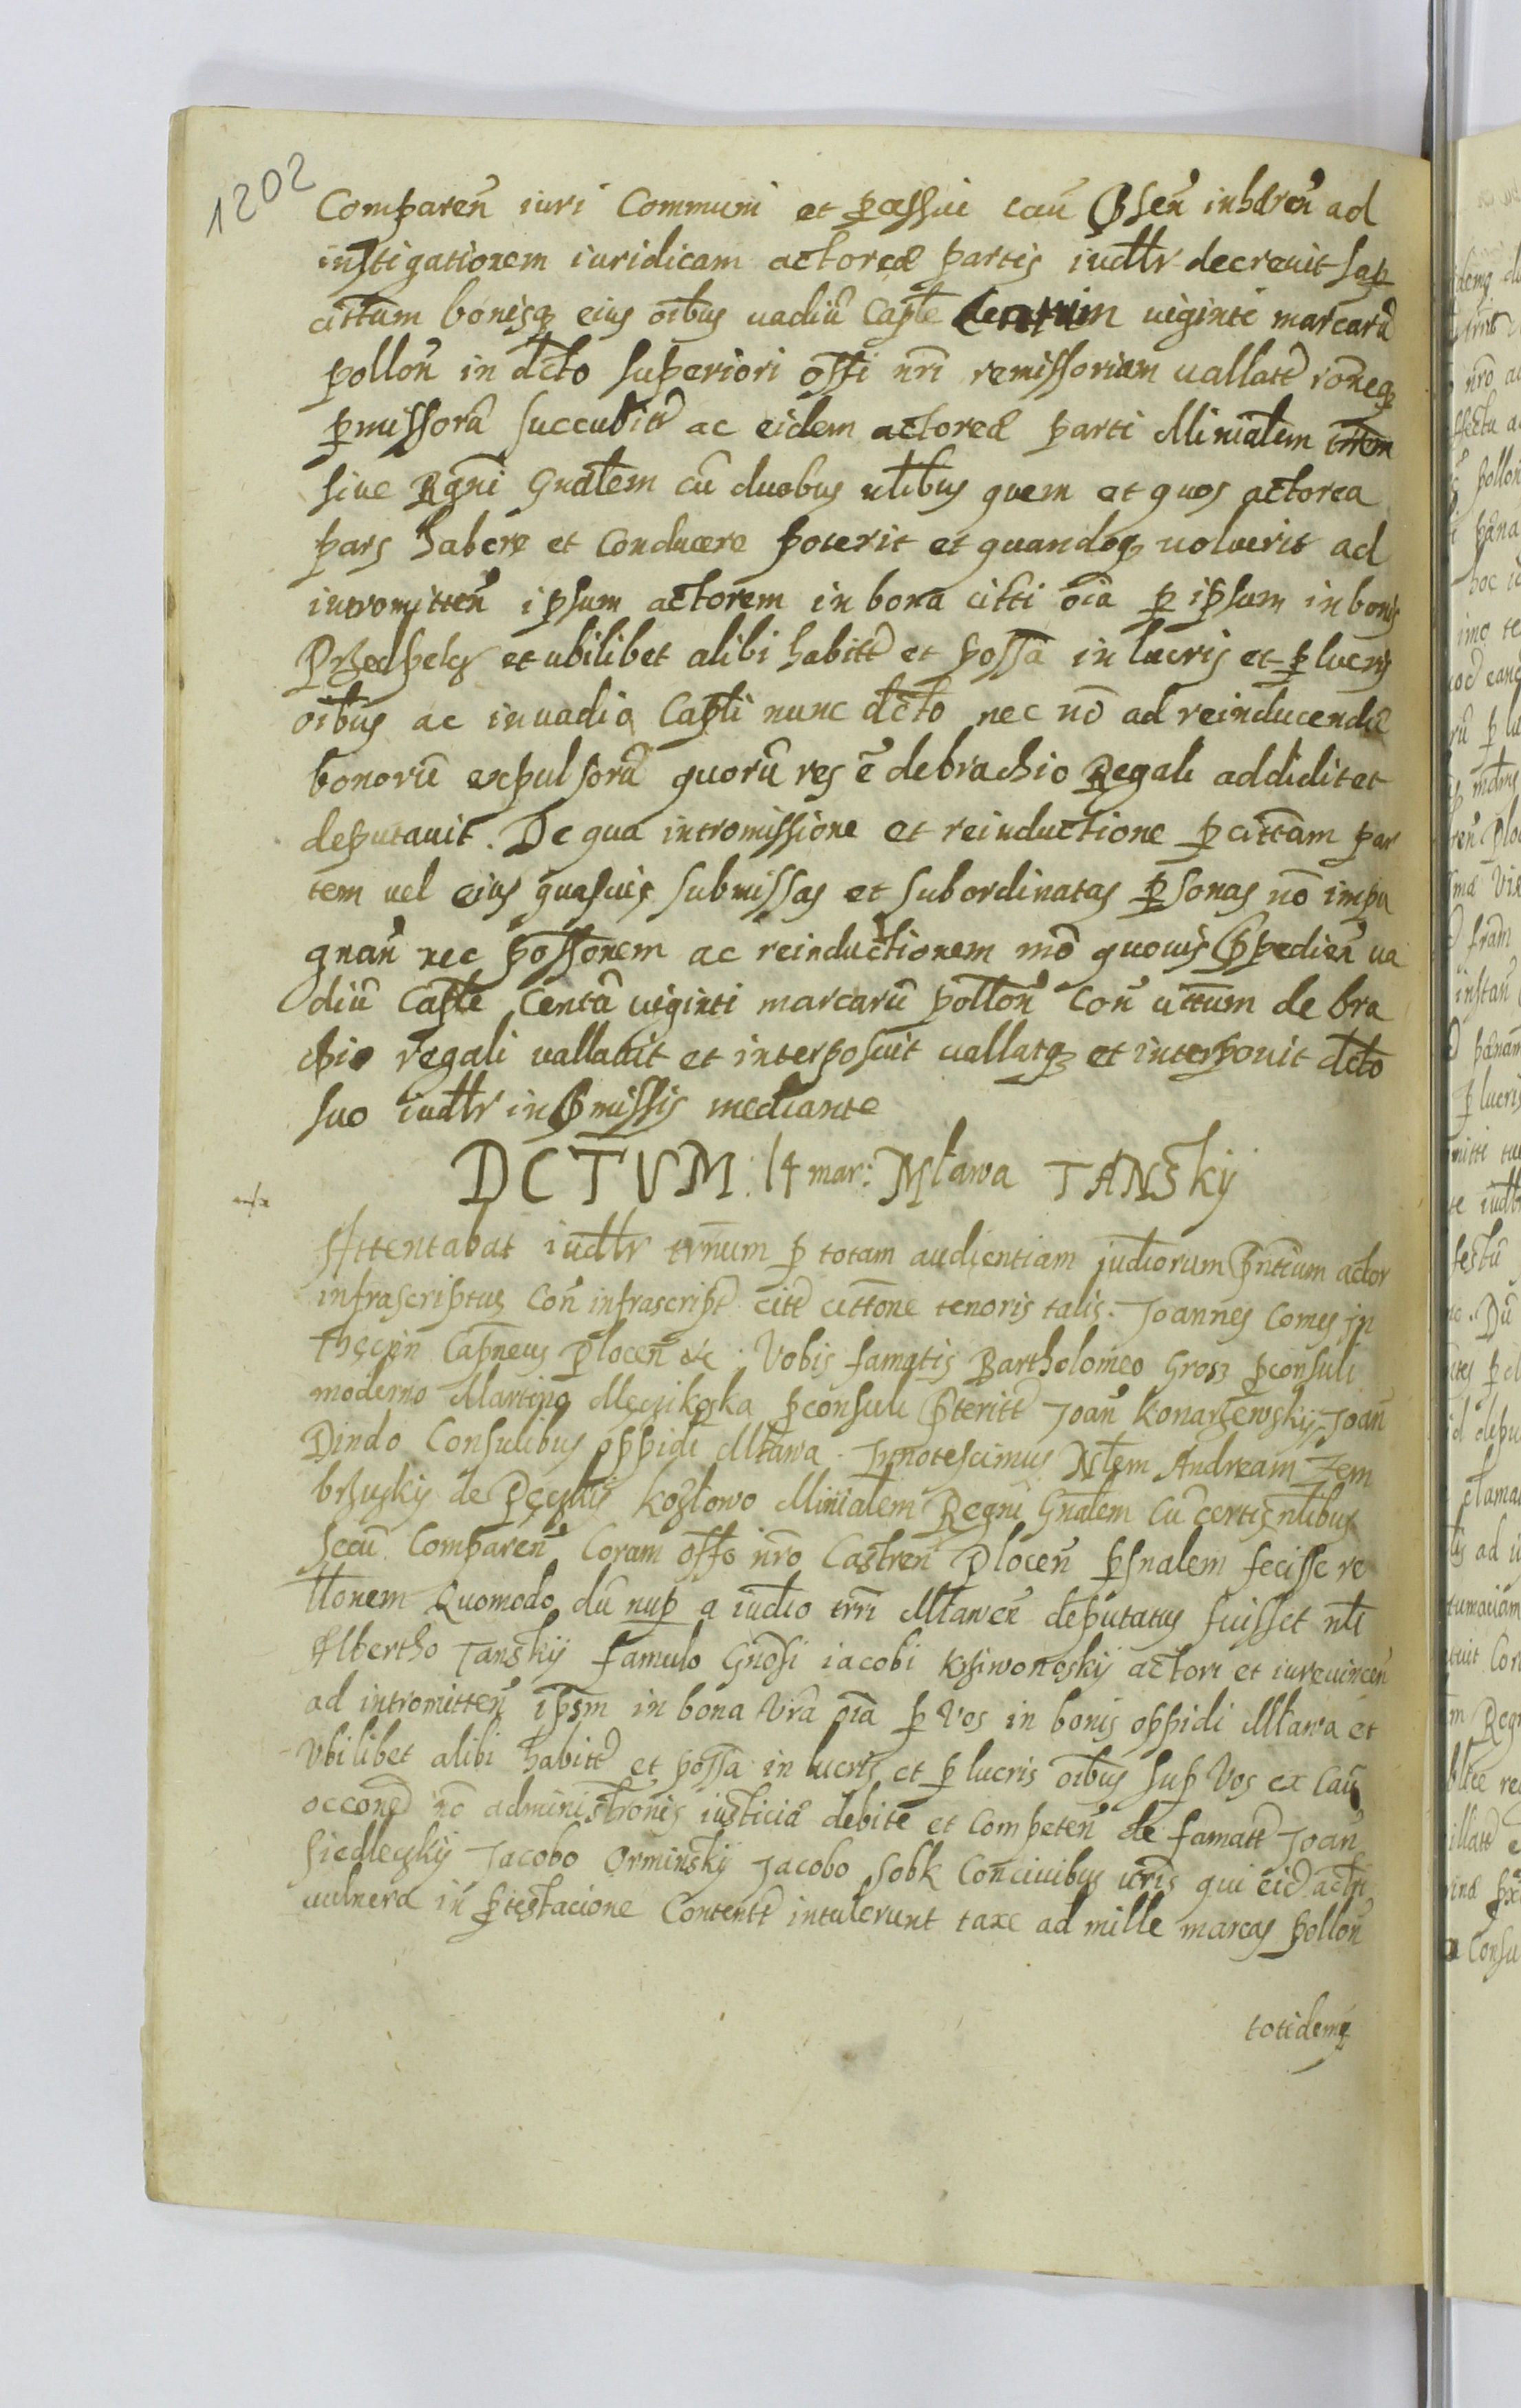 1202
Comparen̄ iuri Communi et passiue cau͠ p̄sen̄ inhæren̄ ad
instigationem iuridicam actoreæ partis iudtr decreuit sup
cittum bonisq; eius oībus uadiū Caple centum uiginti marcarū
pollon̄ in dcto superiori offi nr̄i remissoriam uallatt rōneq;
p̄missorū succubit ac eidem actoreæ parti Minialem trrem
siue Rgni Gnalem cū duobus nlibus quem et quos actorea
pars habere et conducere poterit et quandoq; uoluerit ad
intromitten̄ ipsum actorem in bona citti oīa p ipsum in bonis
et ubilibet alibi habitt et possā in lucris et p lucris
oībus ac in uadio Capli nunc dcto nec nō ad reinducendū
bonorū expulsorū quorū res ē de brachio Regali addidit et
deputauit. De qua intromissione et reinductione p cittam par
tem uel eius quasuis submissas et subordinatas psonas nō impu
gnan̄ nec possonem ac reinductionem mō quouis p̄pedien̄ ua
diū Caple Centū uiginti marcarū pollon̄ con̄ cittum de bra
chio regali uallauit et interposuit uallatq; et interponit dcto
suo iudtr in p̄missis mediante
DCTUM: 14 mar: Mława TANSkij
Attentabat iudtr trnum p totam audientiam judiorum p̄ntium actor
infrascriptus Con̄ infrascript citt cittone tenoris talis. Joannes Comes in
Thęczin Capneus Plocen̄ &c. Vobis famatis Bartholomeo Gross pconsuli
moderno Martino Męczikoska pconsuli p̄teritt Joan̄ Konarzewskij, Joan̄
Dindo Consulibus oppidi Mława. Innotescimus Nlem Andream Zem
brzuskij de Pęczki Kozłowo Minialem Regni Gnalem Cū certis nlibus
secū Comparen̄ Coram offo nr̄o Castren̄ Plocen̄ psnalem fecisse re
ltonem Quomodo dū nup a iudio trri Mławen̄ deputatus fuisset nli
Albertho Tanskij famulo Gnosi iacobi Krziwonoskij actori et iureuincen̄
ad intromitten̄ ipsm in bona Vra oīa p Vos in bonis oppidi Mława et
Vbilibet alibi habitt et possā in lucris et p lucris oībus sup Vos ex Cau͠
occone nō administronis iusticiæ debite et Competen̄ de famatt Joan̄
Siedleczkij Jacobo Orminskij Jacobo Sobk Conciuibus uris qui eid actri
uulnera in ptestacione Contentt intulerunt taxe ad mille marcas pollon̄
totidemq;